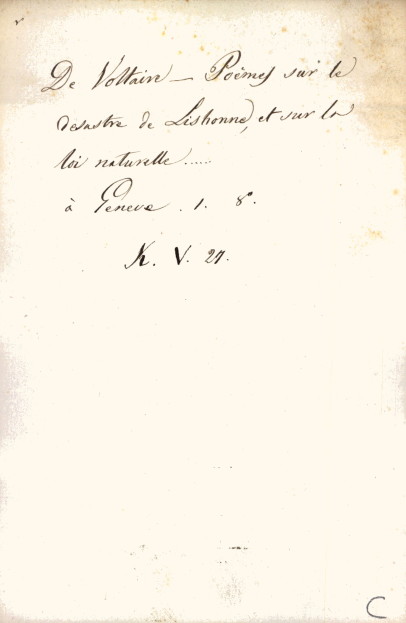 De Voltaire — Poèmes sur le
desastre de Lisbonne, et sur la
loi naturelle.....
à Geneve . 1. 8°.
K. V. 27.
C